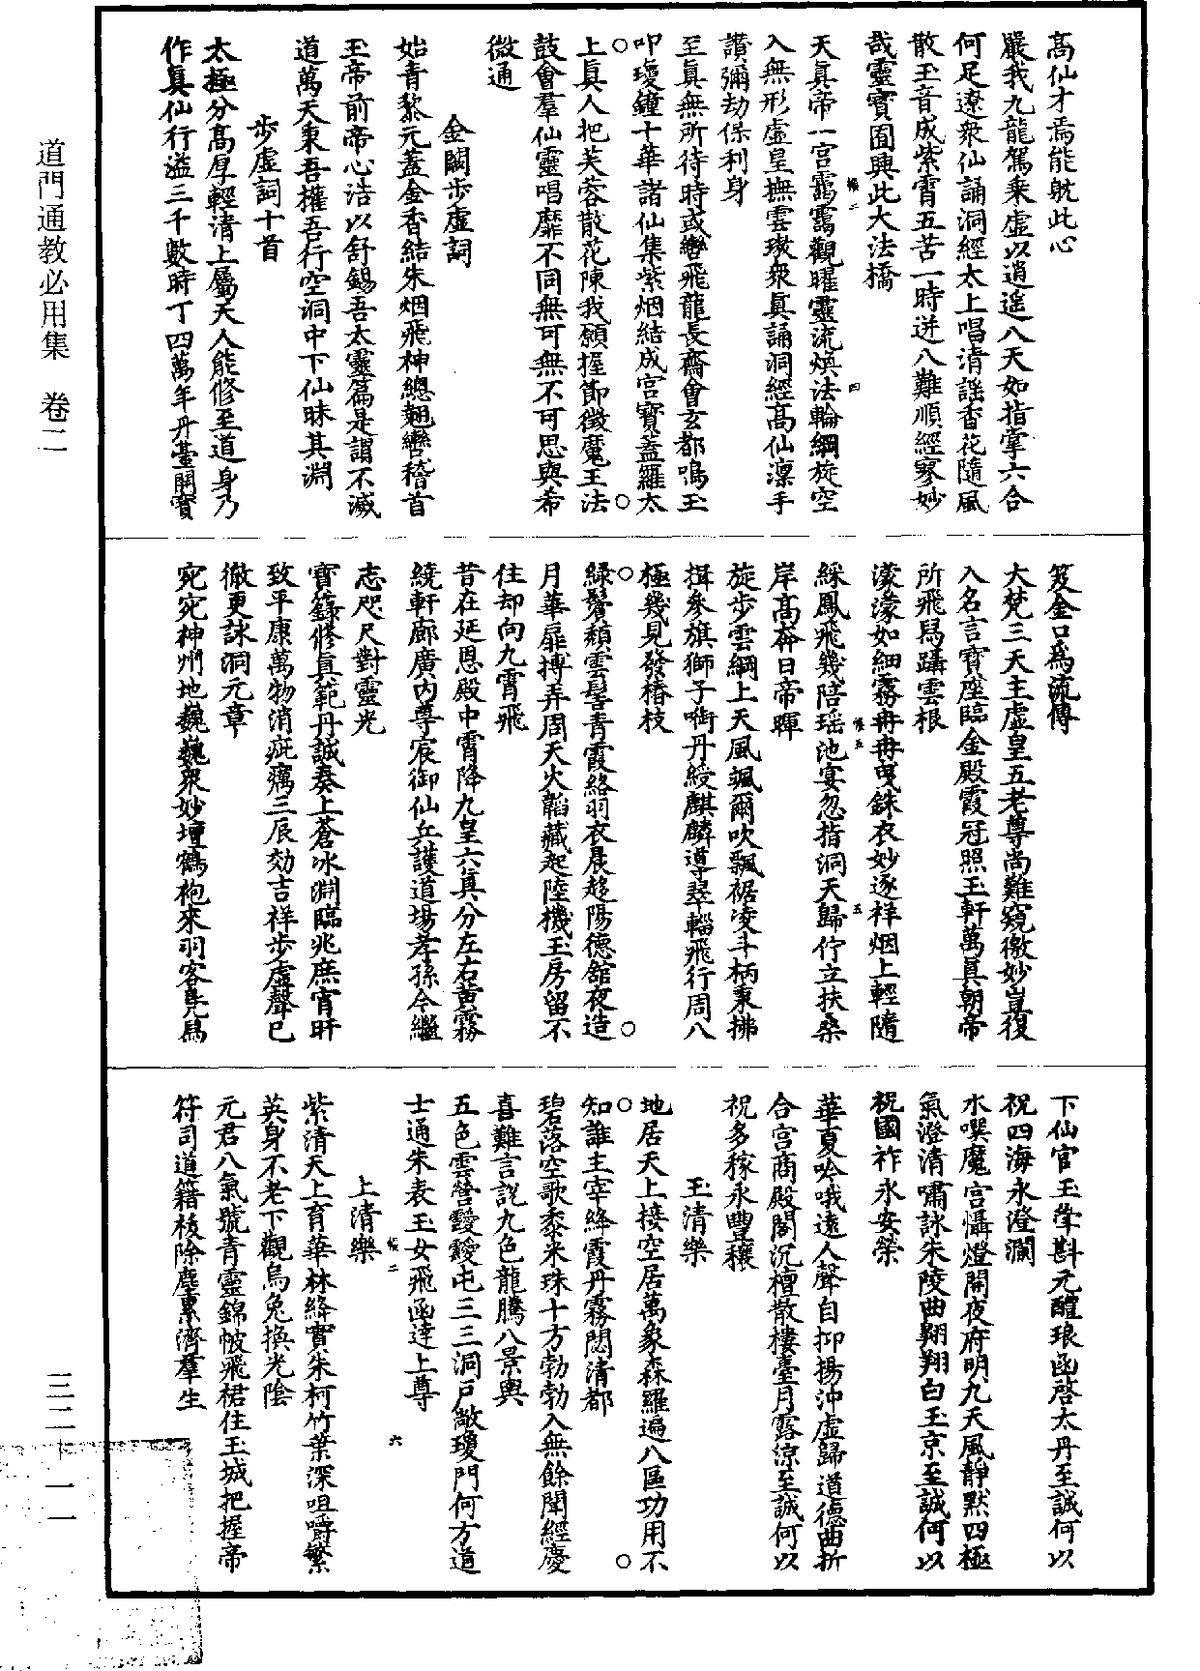 高仙才焉能躭此心
嚴我九龍駕乘虛以逍遙八天如指掌六合
何足遼衆仙誦洞經太上唱清謡香花隨風
散玉音成紫霄五苦一時迸八難順經寥妙
哉靈寶囿興此大法橋
天真帝一宫靄靄觀曜靈流煥法輪綱旋空
入無形虛皇撫雲璈衆真誦洞經高仙凛手
讚彌劫保利身
至真無所待時或轡飛龍長齋會玄都鳴玉
叩瓊鐘十華諸仙集紫烟結成宫寳蓋羅太
上真人把芙蓉散花陳我願握節徵魔王法
鼓會羣仙靈唱靡不同無可無不可思與希
微通
金闕步虛詞
始青黎元蓋金香結朱烟飛神總翹轡稽首
玉帝前帝心浩以舒錫吾太靈篇是謂不滅
道萬天秉吾權吾行空洞中下仙昧其淵
步虛詞十首
太極分高厚輕清上屬天人能修至道身乃
作真仙行溢三千數時丁四萬年丹臺開寶
笈金口爲流傳
大梵三天主虛皇五老尊尚難窺徼妙豈復
入名言寶座臨金殿霞冠照玉軒萬真朝帝
所飛舄躡雲根
濛濛如細霧冉冉曳銖衣妙逐祥烟上輕隨
綵鳳飛幾陪瑶池宴忽指洞天歸佇立扶桑
岸高奔日帝暉
旋步雲綱上天風颯爾吹飄裾凌斗柄秉拂
揖參旗獅子啣丹綬麒麟導翠輜飛行周八
極幾見發椿枝
綠鬢頹雲髻青霞絡羽衣晨趍陽德舘夜造
月華扉搏弄周天火韜藏起陸機玉房留不
住却向九霄飛
昔在延恩殿中霄降九皇六真分左右黄霧
繞軒廊廣内尊宸御仙兵護道場孝孫今繼
志咫尺對靈光
寶籙修真範丹誠奏上蒼冰淵臨兆庶宵旰
致平康萬物消疵癘三辰効吉祥步虛聲已
徹更詠洞元章
宛宛神州地巍巍衆妙壇鶴袍來羽客鳬舄
下仙官玉斝斟元醴琅函啓太丹至誠何以
祝四海永澄瀾
水噀魔宫懾燈開夜府明九天風靜默四極
氣澄清嘯詠朱陵曲翺翔白玉京至誠何以
祝國祚永安榮
華夏吟哦遠人聲自抑揚沖虛歸道德曲折
合宫商殿閣沉檀散樓臺月露凉至誠何以
祝多稼永豐穰
玉清樂
地居天上接空居萬象森羅遍八區功用不
知誰主宰絳霞丹霧閟清都
碧落空歌黍米珠十方勃勃入無餘聞經慶
喜難言説九色龍騰八景輿
五色雲營靉靉屯三三洞戸敞瓊門何方道
士通朱表玉女飛函達上尊
上清樂
紫清天上育華林絳實朱柯竹葉深咀嚼繁
英身不老下觀烏兔换光陰
元君八氣號青靈錦帔飛裙住玉城把握帝
符司道籍祓除塵累濟羣生
道門通教必用集　卷二
三二—一一